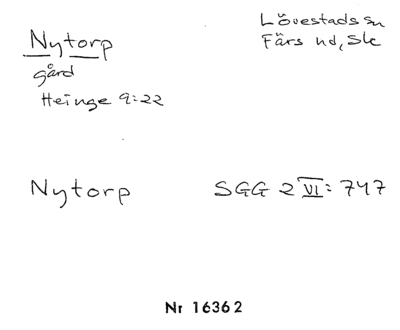 Nytorp
Lövestads sn
Färs hd, Sk
gård
Heinge 9:22
Nytorp SGG 2 VI: 747
Nr 16362